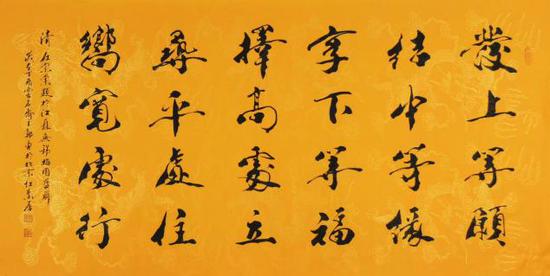 發上等願
结中等缘
享下等福
擇高處立
尋平處住
嚮寬處行
清 左宗棠題於江蘇無錫梅園
歲在丁酉